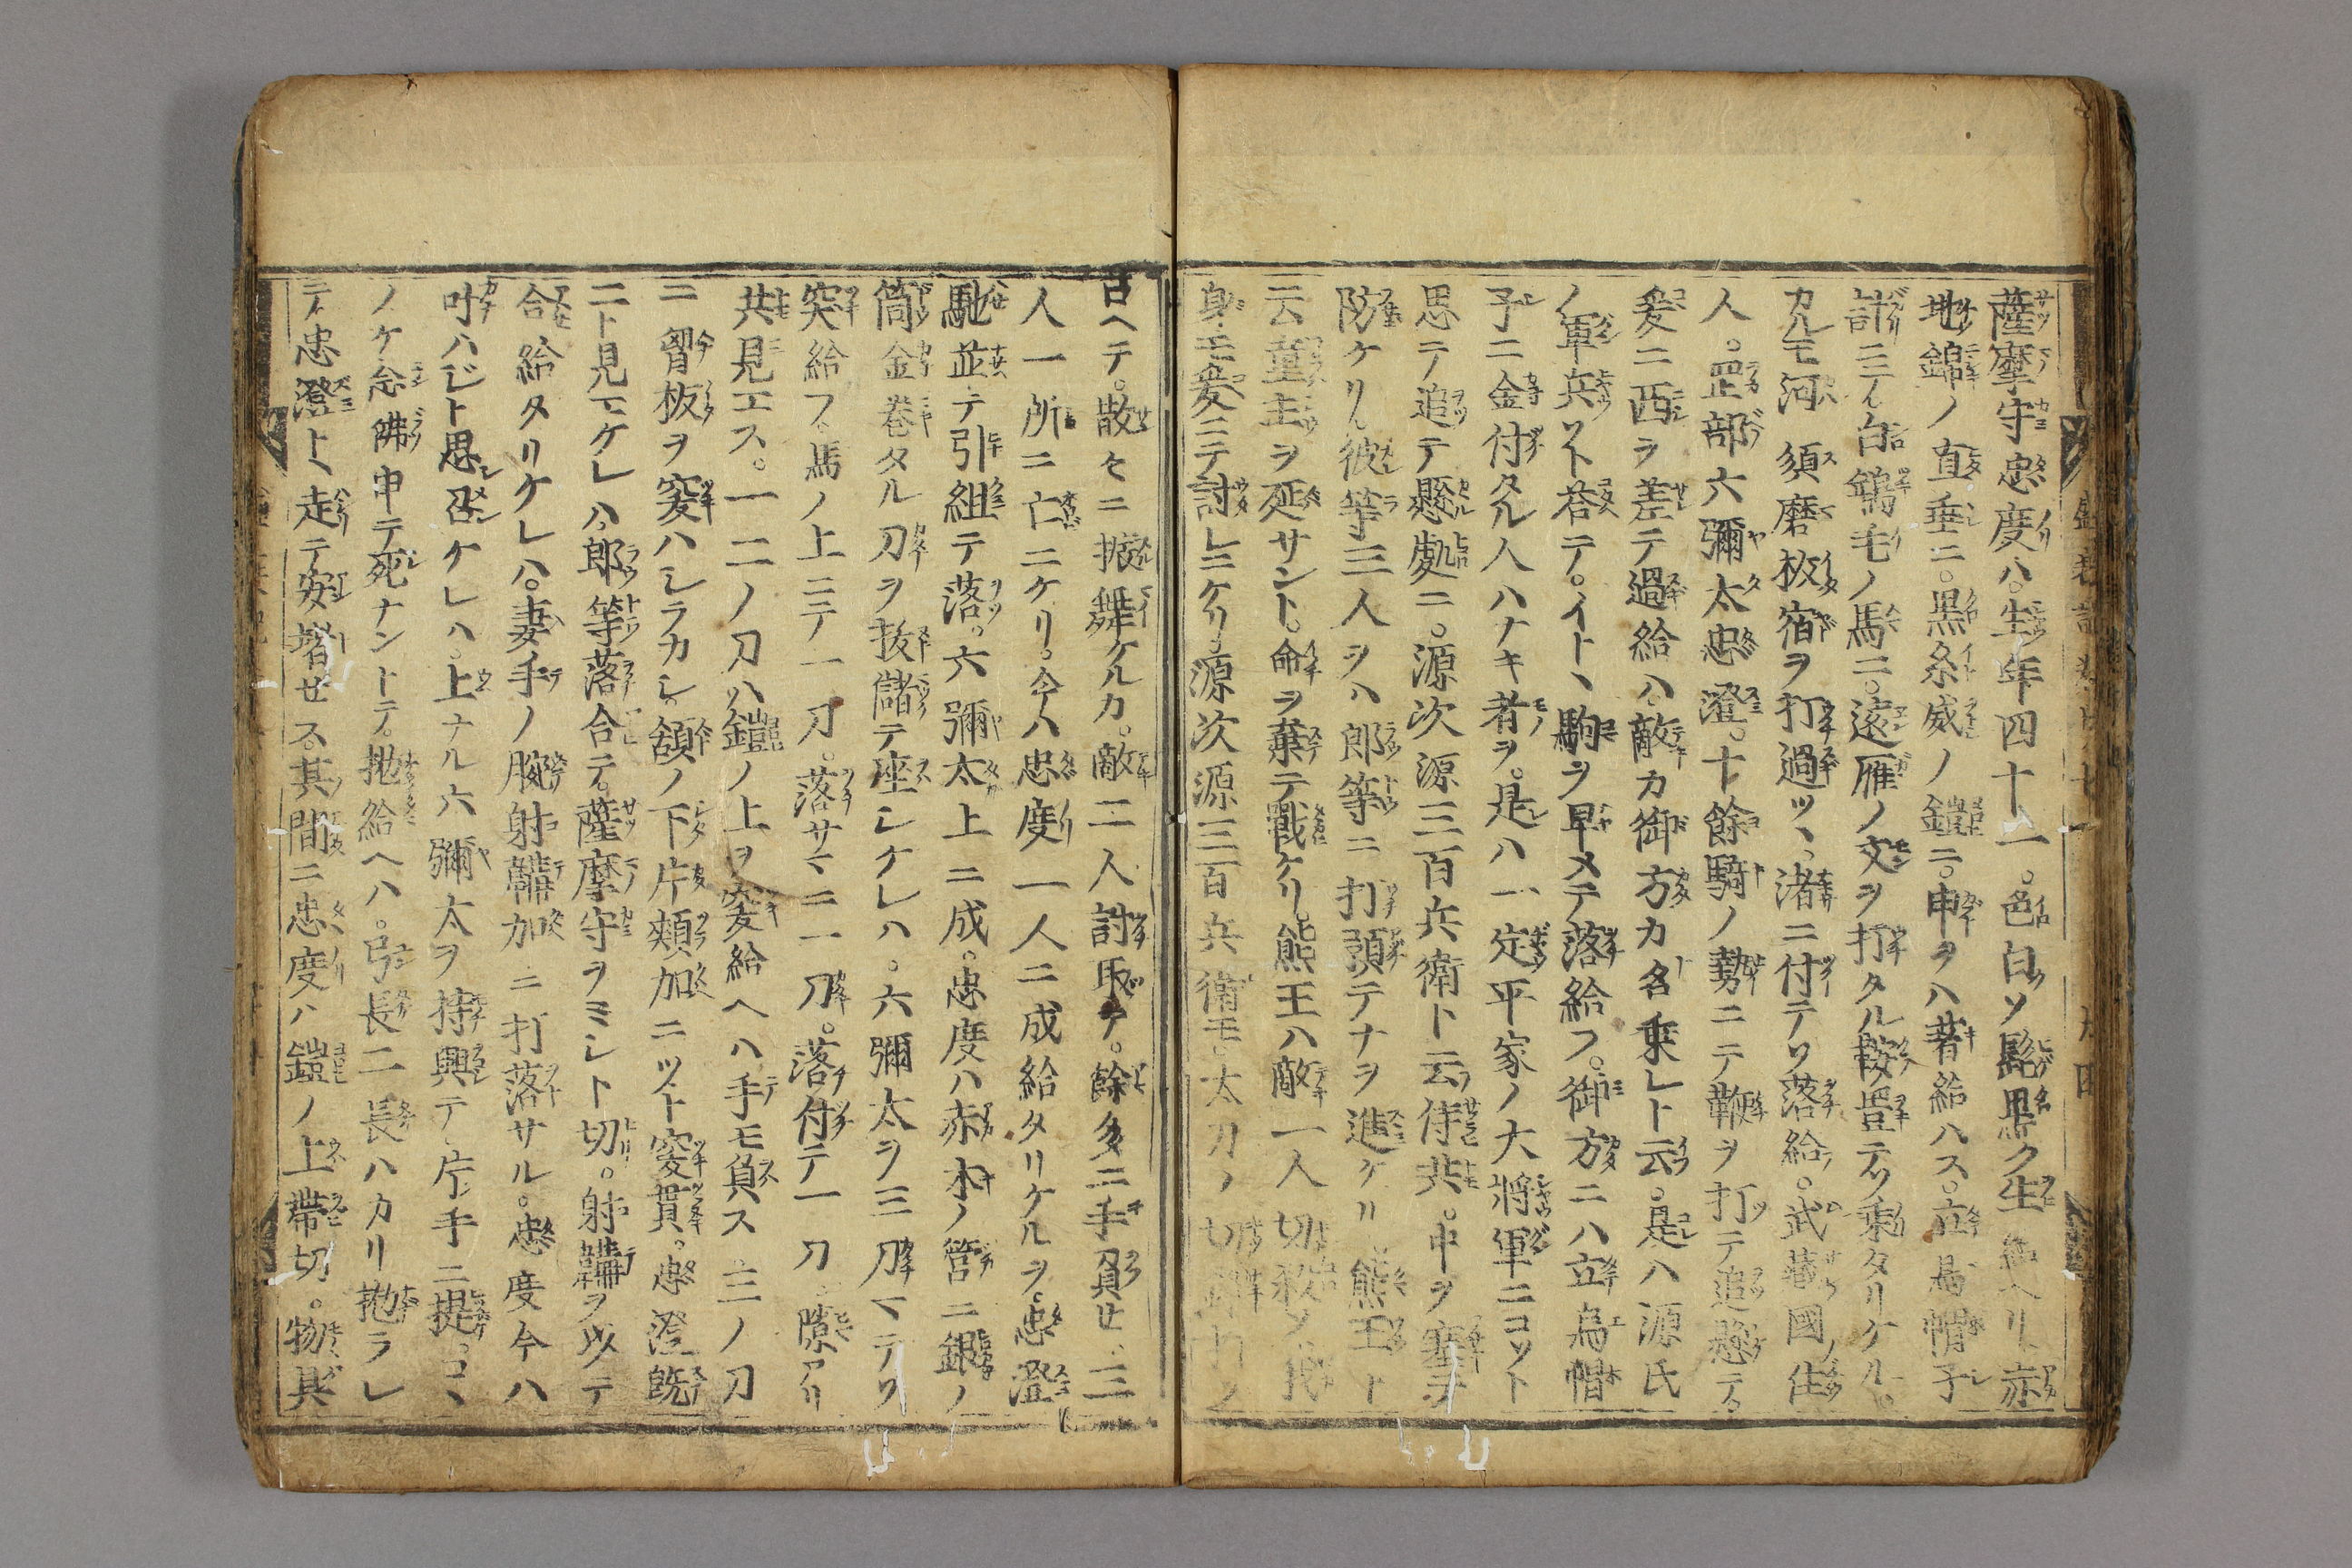 薩摩守忠度ハ。生年四十一。色白ソ髭黒ク生ヘリ。赤
地錦ノ直垂ニ。黒糸威ノ鎧ニ。甲ヲハ著給ハス。立烏帽子
計ニテ白鴾毛ノ馬ニ。遠雁ノ文ヲ打タル鞍置テソ乗タリケル。
カルモ河須磨板宿ヲ打過ツヽ。渚ニ付テソ落給。武蔵國ノ住
人。罡部六彌太忠澄。十餘騎ノ勢ニテ鞭ヲ打テ追懸テ。
爰ニ西ヲ差テ過給ハ敵カ御方カ名乗レト云。是ハ源氏
ノ軍兵ソト荅テ。イトヽ駒ヲ早メテ落給フ。御方ニハ立烏帽
子ニ金付タル人ハナキ者ヲ。是ハ一定平家ノ大將軍ニコソト
思テ追テ懸處ニ。源次源三百兵衛ト云侍共。中ヲ塞テ
防ケリ。彼等三人ヲハ郎等ニ打預テナヲ進ケリ。熊王ト
云童主ヲ延サント。命ヲ棄テ戰ケリ。熊王ハ敵一人切
身モ爰ニテ討レニケリ。源次源三百兵衛モ。太刀ノ切
古ヘテ。散々ニ振舞ケルカ。敵二人討取テ。餘多ニ手負せ。三
人一所ニ亡ニケリ。今ハ忠度一人ニ成給タリケルヲ。忠澄
馳並テ引組テ落。六彌太上ニ成。忠度ハ赤木ノ管ニ銀ノ
筒金巻タル刀ヲ抜儲テ座レケレハ。六彌太ヲ三刀マテソ
突給フ。馬ノ上ニテ一刀。落サマニ一刀。落付テ一刀。隙アリ
共見エス。一二ノ刀ハ鎧ノ上ヲ突給ヘハ手モ負ス三ノ刀
ニ胷板ヲ突ハシラカシ。頷ノ下片頰加ニツト突貫。忠澄既
ニト見エケレハ。郎等落合テ。薩摩守ヲミシト切。射鞴ヲ以テ
合給タリケレハ。妻手ノ腕射鞴加ニ打落サル。忠度今ハ
叶ハジト思召ケレハ。上ナル六彌太ヲ持興テ。片手ニ提。コヽ
ノケ念佛申テ死ナントテ。抛給ヘハ。弓長二長ハカリ抛ラレ
テ。忠澄トヽ走テ安堵せス。其間ニ忠度ハ鎧ノ上帯切。物具